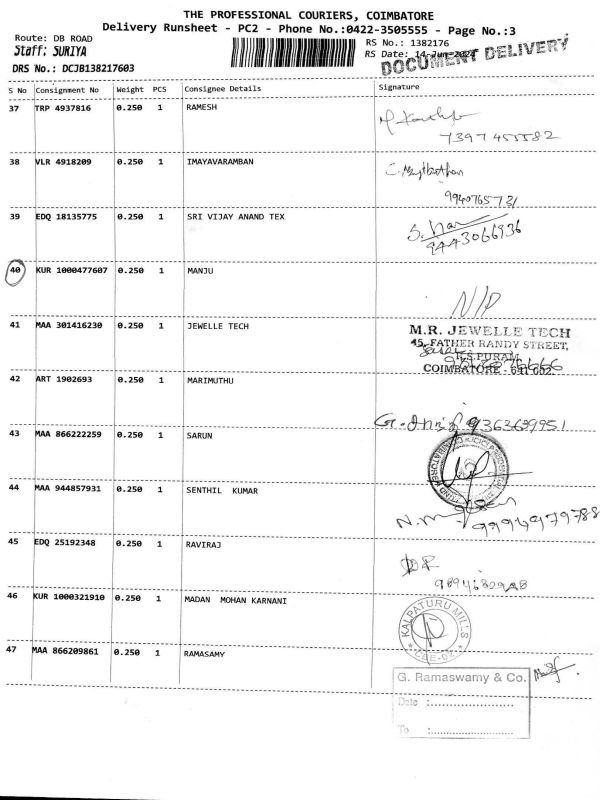 THE PROFESSIONAL COURIERS, COIMBATORE
Delivery Runsheet - PC2 - Phone No.:0422-3505555 - Page No.:3
Route: DB ROAD
Staff: SURIYA
DRS No.: DCJB138217603
RS No.: 1382176
RS Date: 14-Jun-2024
DOCUMENT DELIVERY
S No Consignment No Weight PCS Consignee Details Signature
37 TRP 4937816 0.250 1 RAMESH
7397455582
38 VLR 4918209 0.250 1 IMAYAVARAMBAN
9940765731
39 EDQ 18135775 0.250 1 SRI VIJAY ANAND TEX
9443066936
40 KUR 1000477607 0.250 1 MANJU
N/D
41 MAA 301416230 0.250 1 JEWELLE TECH
M.R. JEWELLE TECH
45, FATHER RANDY STREET,
R.S.PURAM,
COIMBATORE - 641 002.
42 ART 1902693 0.250 1 MARIMUTHU
43 MAA 866222259 0.250 1 SARUN
44 MAA 944857931 0.250 1 SENTHIL KUMAR
45 EDQ 25192348 0.250 1 RAVIRAJ
46 KUR 1000321910 0.250 1 MADAN MOHAN KARNANI
KALPATURU MILLS
47 MAA 866209861 0.250 1 RAMASAMY
G. Ramaswamy & Co.
Date :........................
To :........................